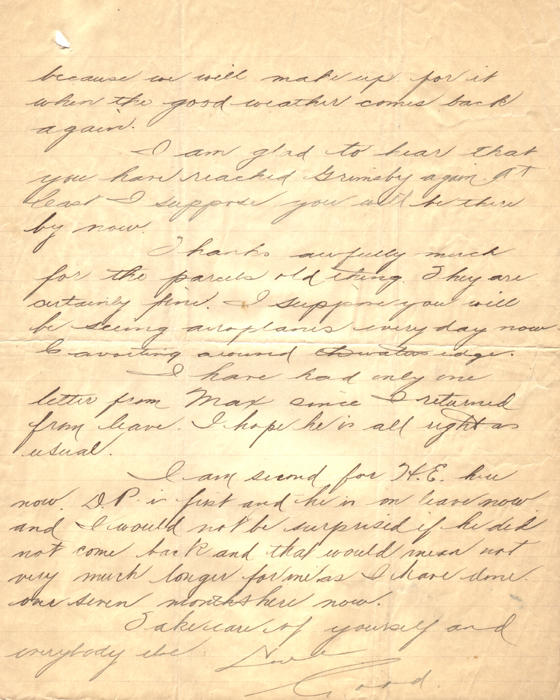 because we will make up for it
when the good weather comes back
again.
I am glad to hear that
you have reached Grimsby again. At
least I suppose you will be there
by now.
Thanks awfully much
for the parcels old thing. They are
certainly fine. I suppose you will
be seeing aeroplanes every day now
around edge.
I have had only one
letter from Max since I returned
from leave. I hope he is all right as
usual.
I am second for H.E. here
now. D.P. is first and he is on leave now
and I would not be surprised if he did
not come back and that would mean not
very much longer for me as I have done
over seven months here now.
Take care of yourself and
everybody else
Love